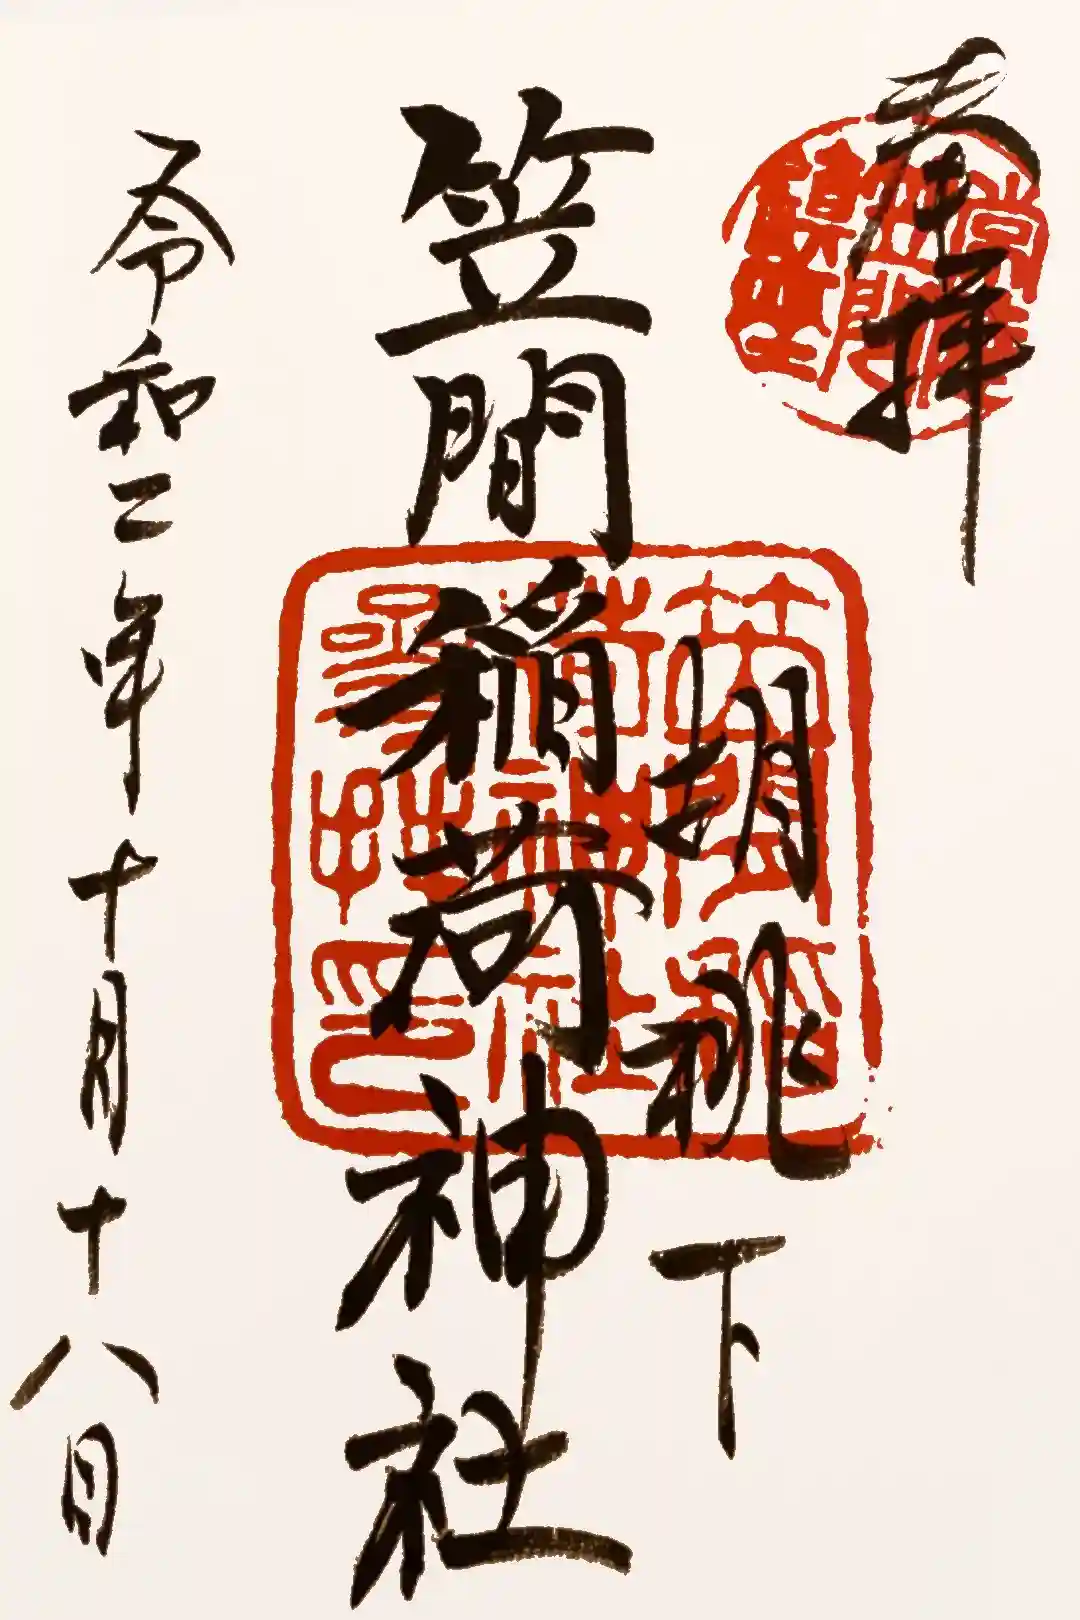 奉拝
胡桃下
笠間稲荷神社
令和二年十月十八日